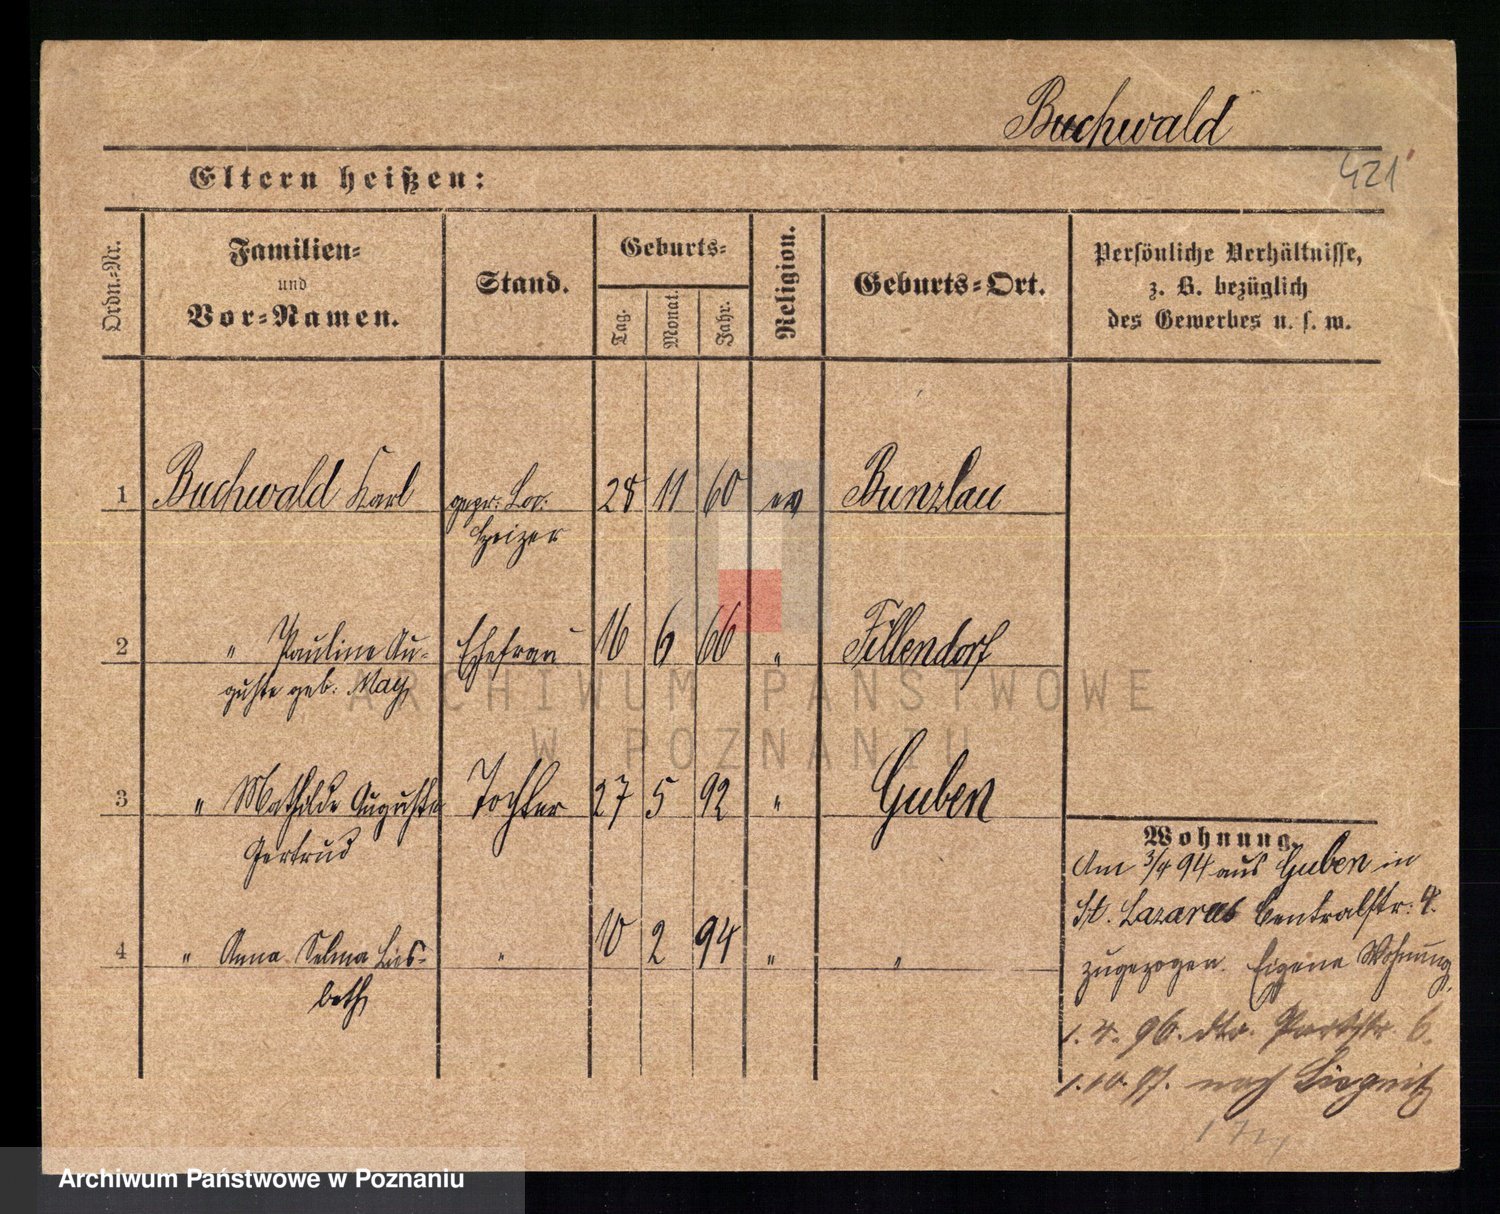 Buchwald
421
Eltern heißen:
Ordn.=Nr.
Familien=
und
Vor=Namen.
Stand.
Geburts=
Tag.
Monat.
Jahr.
Religion.
Geburts=Ort.
Persönliche Verhältnisse,
z. B. bezüglich
des Gewerbes u. s. w.
1 Buchwald Karl gepr. Loc. 28 11 60 ev Bunzlau
Heizer
2 " Pauline Au- Ehefrau 16 6 66 " Tillendorf
guste geb. May
3 " Mathilde Auguste Tochter 27 5 92 " Guben
Gertrud
4 " Anna Selma Lies- " 10 2 94 " "
beth
Wohnung.
Am 3/4 94 aus Guben in
St. Lazarus Centralstr. 4.
zugezogen. Eigene Wohnung.
1.4.96. dto. Parkstr. 6.
1.10.97. nach Liegnitz
ARCHIWUM PAŃSTWOWE
W POZNANIU
Archiwum Państwowe w Poznaniu